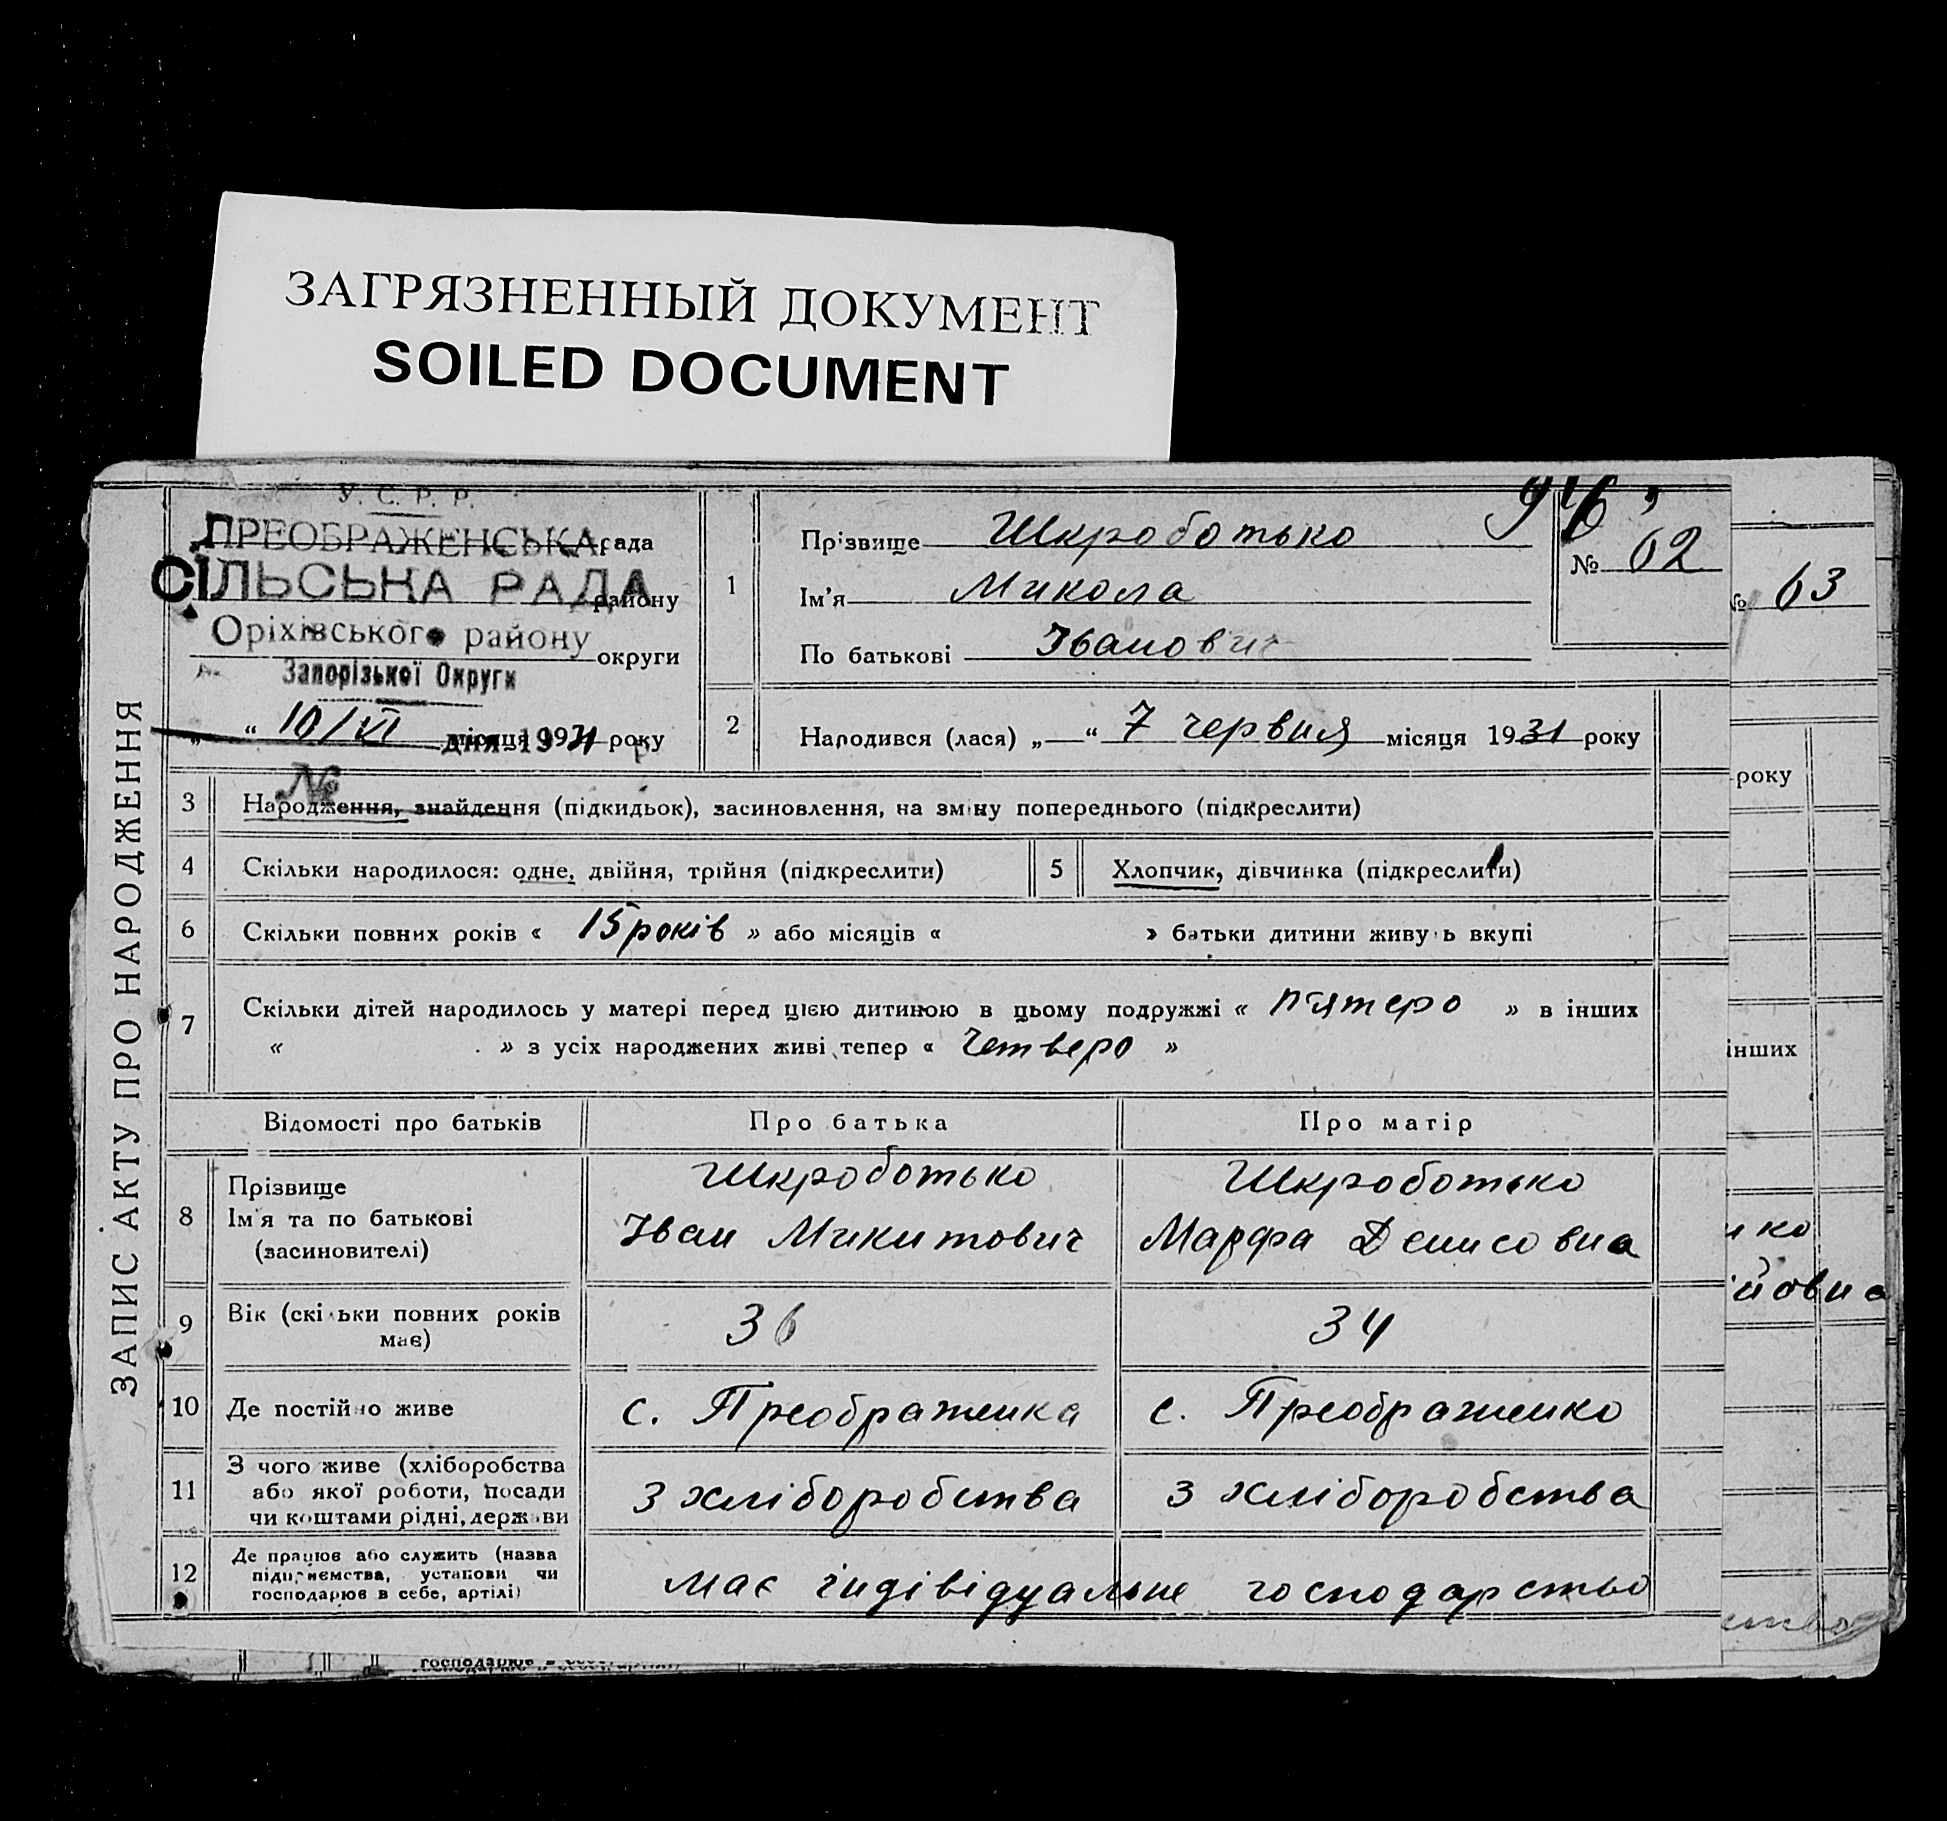 ЗАГРЯЗНЕННЫЙ ДОКУМЕНТ
SOILED DOCUMENT
ЗАПИС АКТУ ПРО НАРОДЖЕННЯ
У. С. Р. Р.
ПРЕОБРАЖЕНСЬКА рада
СІЛЬСЬКА РАДА
району
Оріхівського району
округи
Запорізької Округи
„ “ 10/VI місяця 1931 року
№
1
Прізвище Шкроботько
Ім’я Микола
По батькові Іванович
96
№ 62
№ 63
2
Народився (лася) „ “ 7 червня місяця 1931 року
року
3 Народження, знайдення (підкидьок), засиновлення, на зміну попереднього (підкреслити)
4 Скільки народилося: одне, двійня, трійня (підкреслити)
5 Хлопчик, дівчинка (підкреслити)
6 Скільки повних років « 15 років » або місяців « » батьки дитини живуть вкупі
7 Скільки дітей народилось у матері перед цією дитиною в цьому подружжі « п'ятеро » в інших
« » з усіх народжених живі тепер « Четверо »
інших
Відомості про батьків Про батька Про матір
8 Прізвище Шкроботько Шкроботько
Ім'я та по батькові Іван Микитович Марфа Денисовна
(засиновителі)
йовна
9 Вік (скільки повних років має) 36 34
10 Де постійно живе с. Преображенка с. Преображенко
11 З чого живе (хліборобства
або якої роботи, посади
чи коштами рідні, держави
з хліборобства з хліборобства
12 Де працює або служить (назва
підприємства, установи чи
господарює в себе, артілі)
має індівідуальне господарство
господарює в себе, артілі)